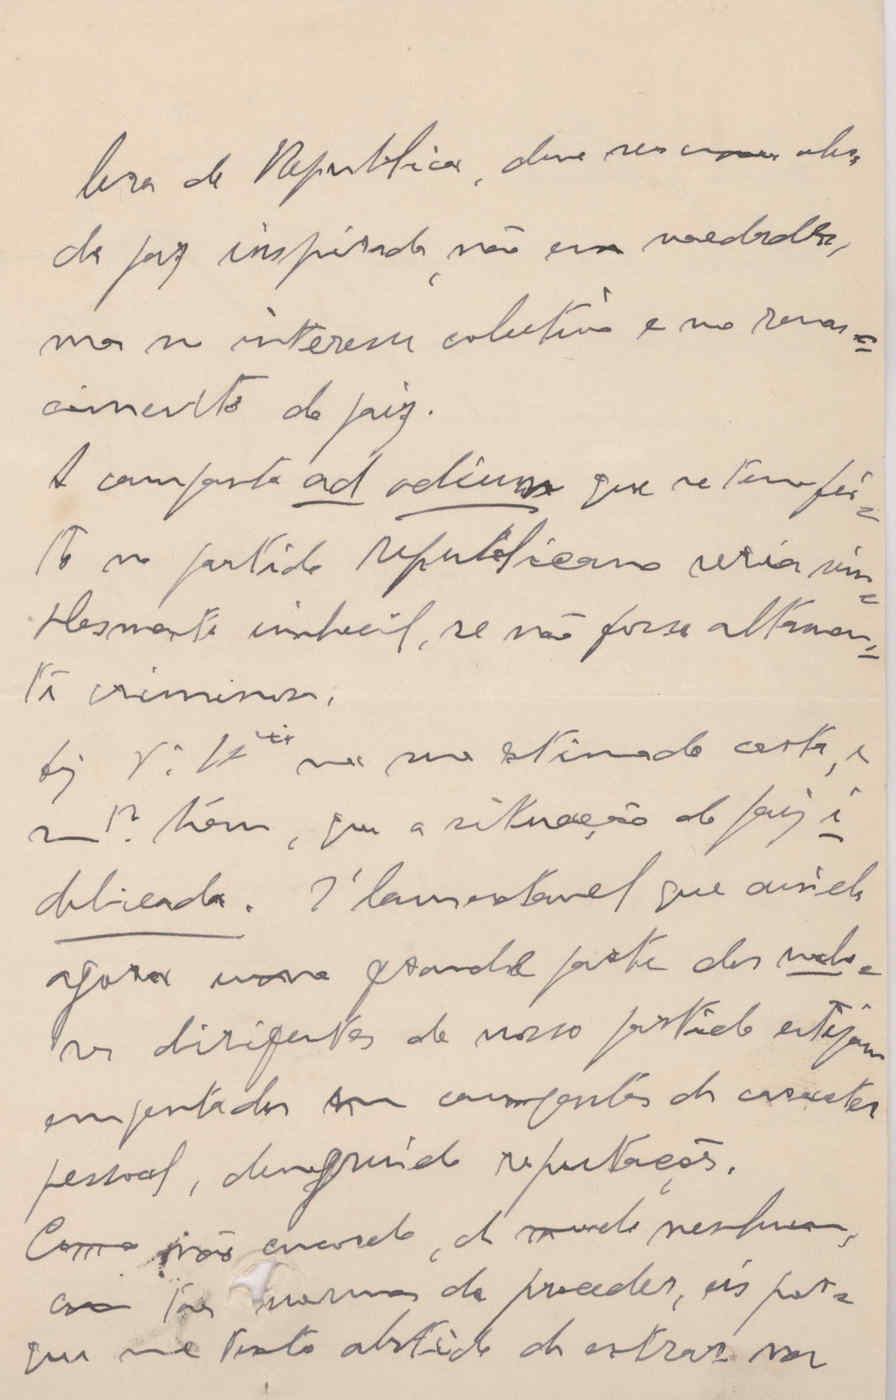 leza da Republica, deve ser uma obra
de paz inspirada, não em vaedades,
mas no interesse colectivo e no renas=
cimento do paiz.
A campanha ad odium que se tem fei=
to no partido republicano seria sim=
plesmente imbecil, se não fosse altamen=
te criminosa.
V. na sua estimada carta, e
m.to bem, que a situação do paiz é
delicada. É lamentavel que ainda
agora uma grande parte dos
dirigentes do nosso partido estejam
empenhados em campanhas de caracter
pessoal, denegrindo reputações.
Como não concordo, de modo nenhum,
com taes normas de proceder, eis por=
que me tenho abstido de entrar nas